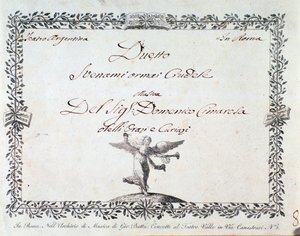 Teatro Argentina In Roma
Duetto
Svenami ormai Crudele
Musica
Del Sigr. Domenico Cimarosa
Orazi e Curiazi
In Roma Nell'Archivio di Musica di Gio. Batta. Cencetti al Teatro Valle in Via Canestrari N.